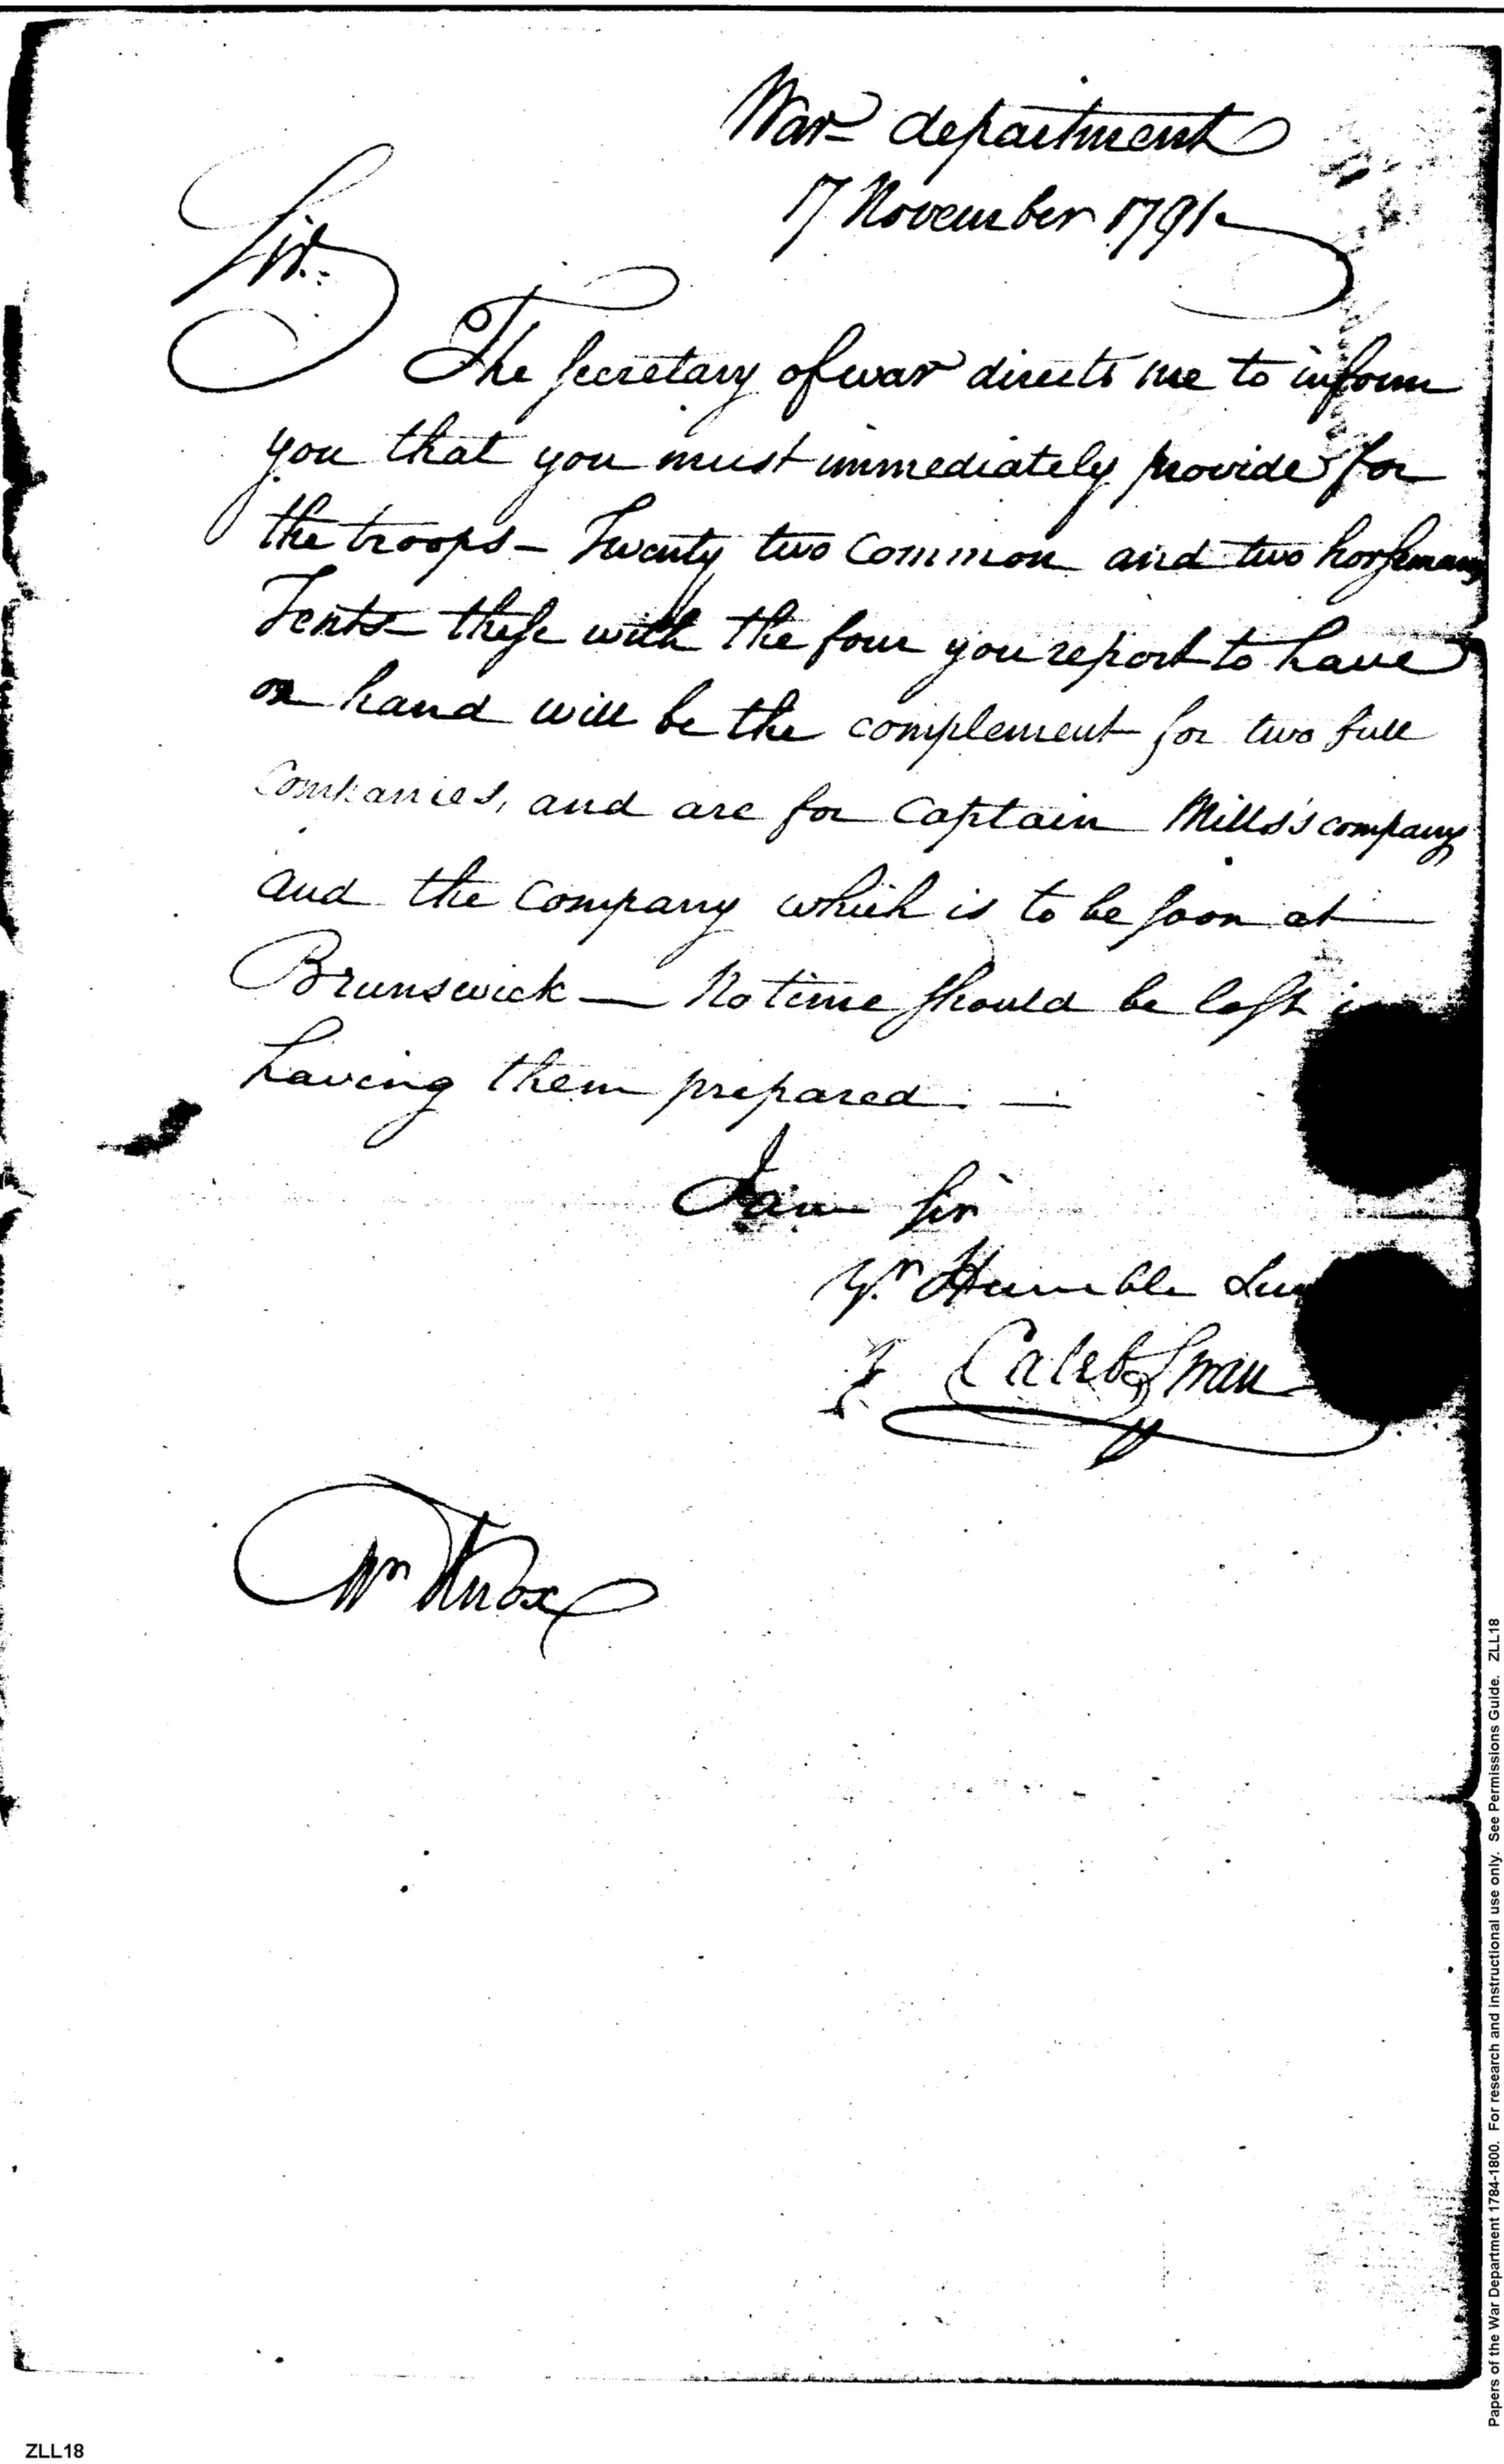 War department
7 November 1791
Sir.
The Secretary of war directs me to inform
you that you must immediately provide for
the troops - Twenty two Common and two horsemans
Tents - these with the four you report to have
on hand will be the complement for two full
Companies, and are for Captain Mills's company
and the Company which is to be soon at
Brunswick - No time should be lost
having them prepared. -
I am Sir
Yr. Humble
Caleb Swan
Wm Knox
Papers of the War Department 1784-1800. For research and instructional use only. See Permissions Guide. ZLL18
ZLL18